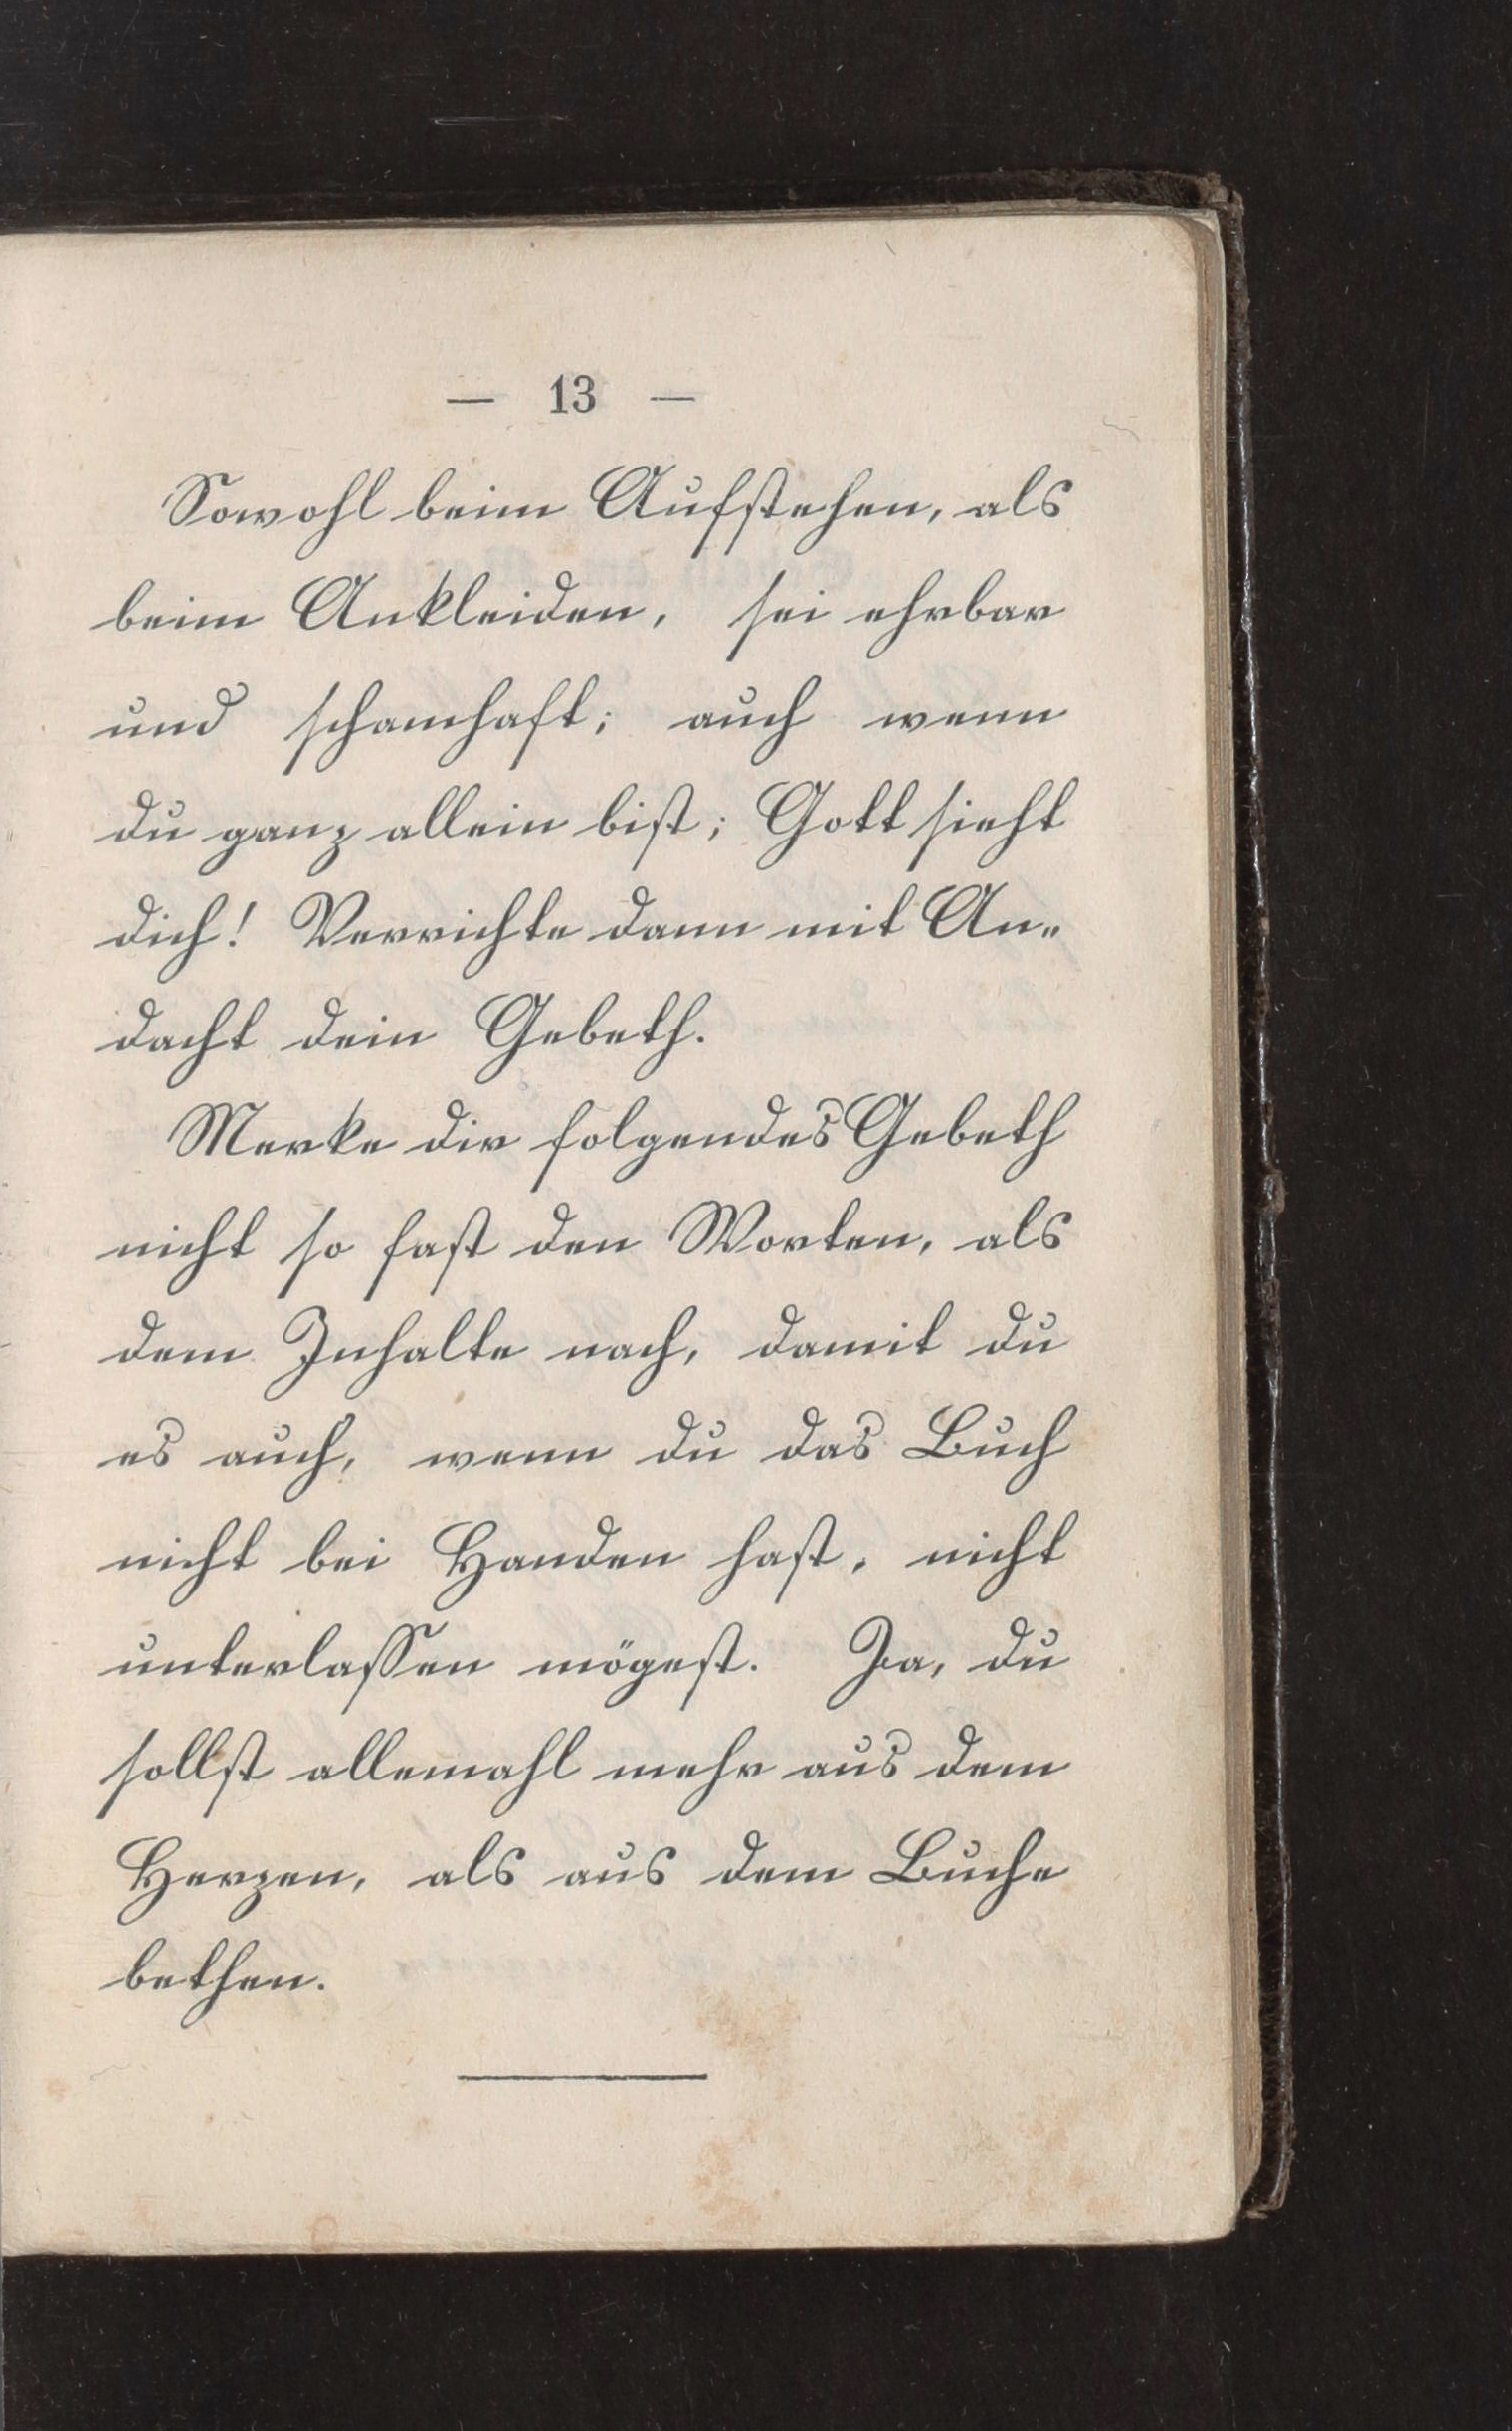 — 13 —
Sowohl beim Aufstehen, als
beim Ankleiden, sei ehrbar
und schamhaft; auch wenn
du ganz allein bist; Gott sieht
dich! Verrichte dann mit An-
dacht dein Gebeth.
Merke dir folgendes Gebeth
nicht so fast den Worten, als
dem Inhalte nach, damit du
es auch, wenn du das Buch
nicht bei Handen hast, nicht
unterlassen mögest. Ja, du
sollst allemahl mehr aus dem
Herzen, als aus dem Buche
bethen.